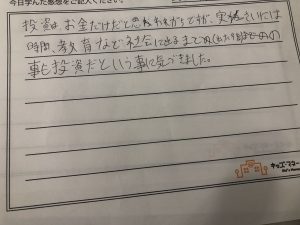 今日学んだ感想をご記入ください。
投資はお金だけだと思われがちですが、実際さいには
時間、教育など社会に出るまでの
事も投資だという事に気づきました。
キッズ・マネー